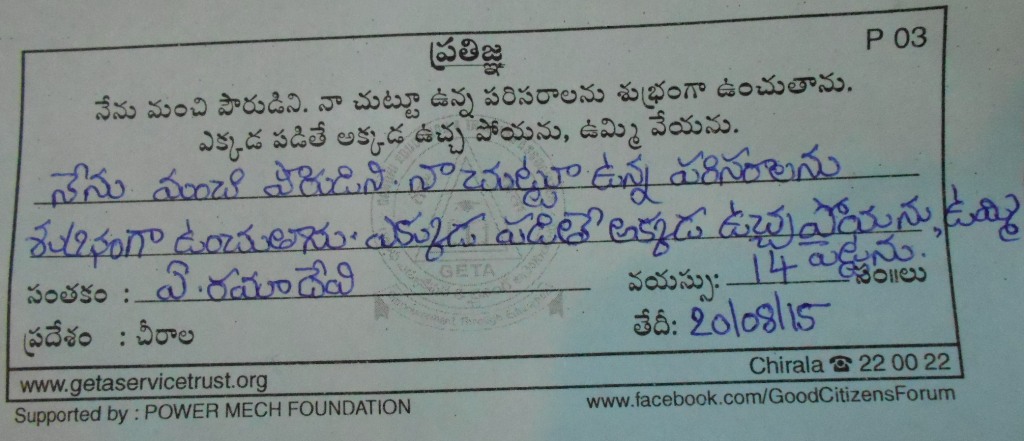 P 03
ప్రతిజ్ఞ
నేను మంచి పౌరుడిని. నా చుట్టూ ఉన్న పరిసరాలను శుభ్రంగా ఉంచుతాను.
ఎక్కడ పడితే అక్కడ ఉచ్చ పోయను, ఉమ్మి వేయను.
నేను మంచి పౌరుడిని. నా చుట్టూ ఉన్న పరిసరాలను
శుభ్రంగా ఉంచుతాను. ఎక్కడ పడితే అక్కడ ఉచ్చ పోయను, ఉమ్మి
సంతకం : ఏ. రమాదేవి వయస్సు: 14 సం॥లు
ప్రదేశం : చీరాల తేదీ: 20/08/15
GETA
www.getaservicetrust.org Chirala ☎ 22 00 22
Supported by : POWER MECH FOUNDATION www.facebook.com/GoodCitizensForum